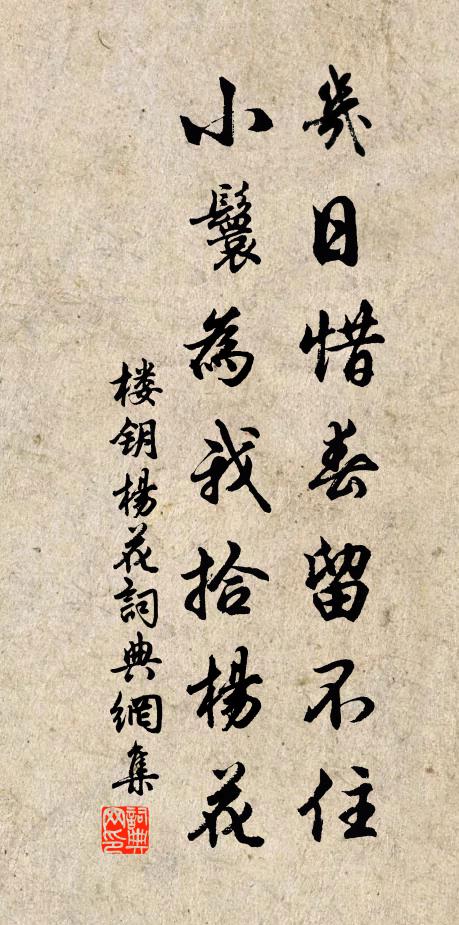 幾日惜春留不住
小鬟為我拾楊花
楼钥楊花詞典網集
詞典網印